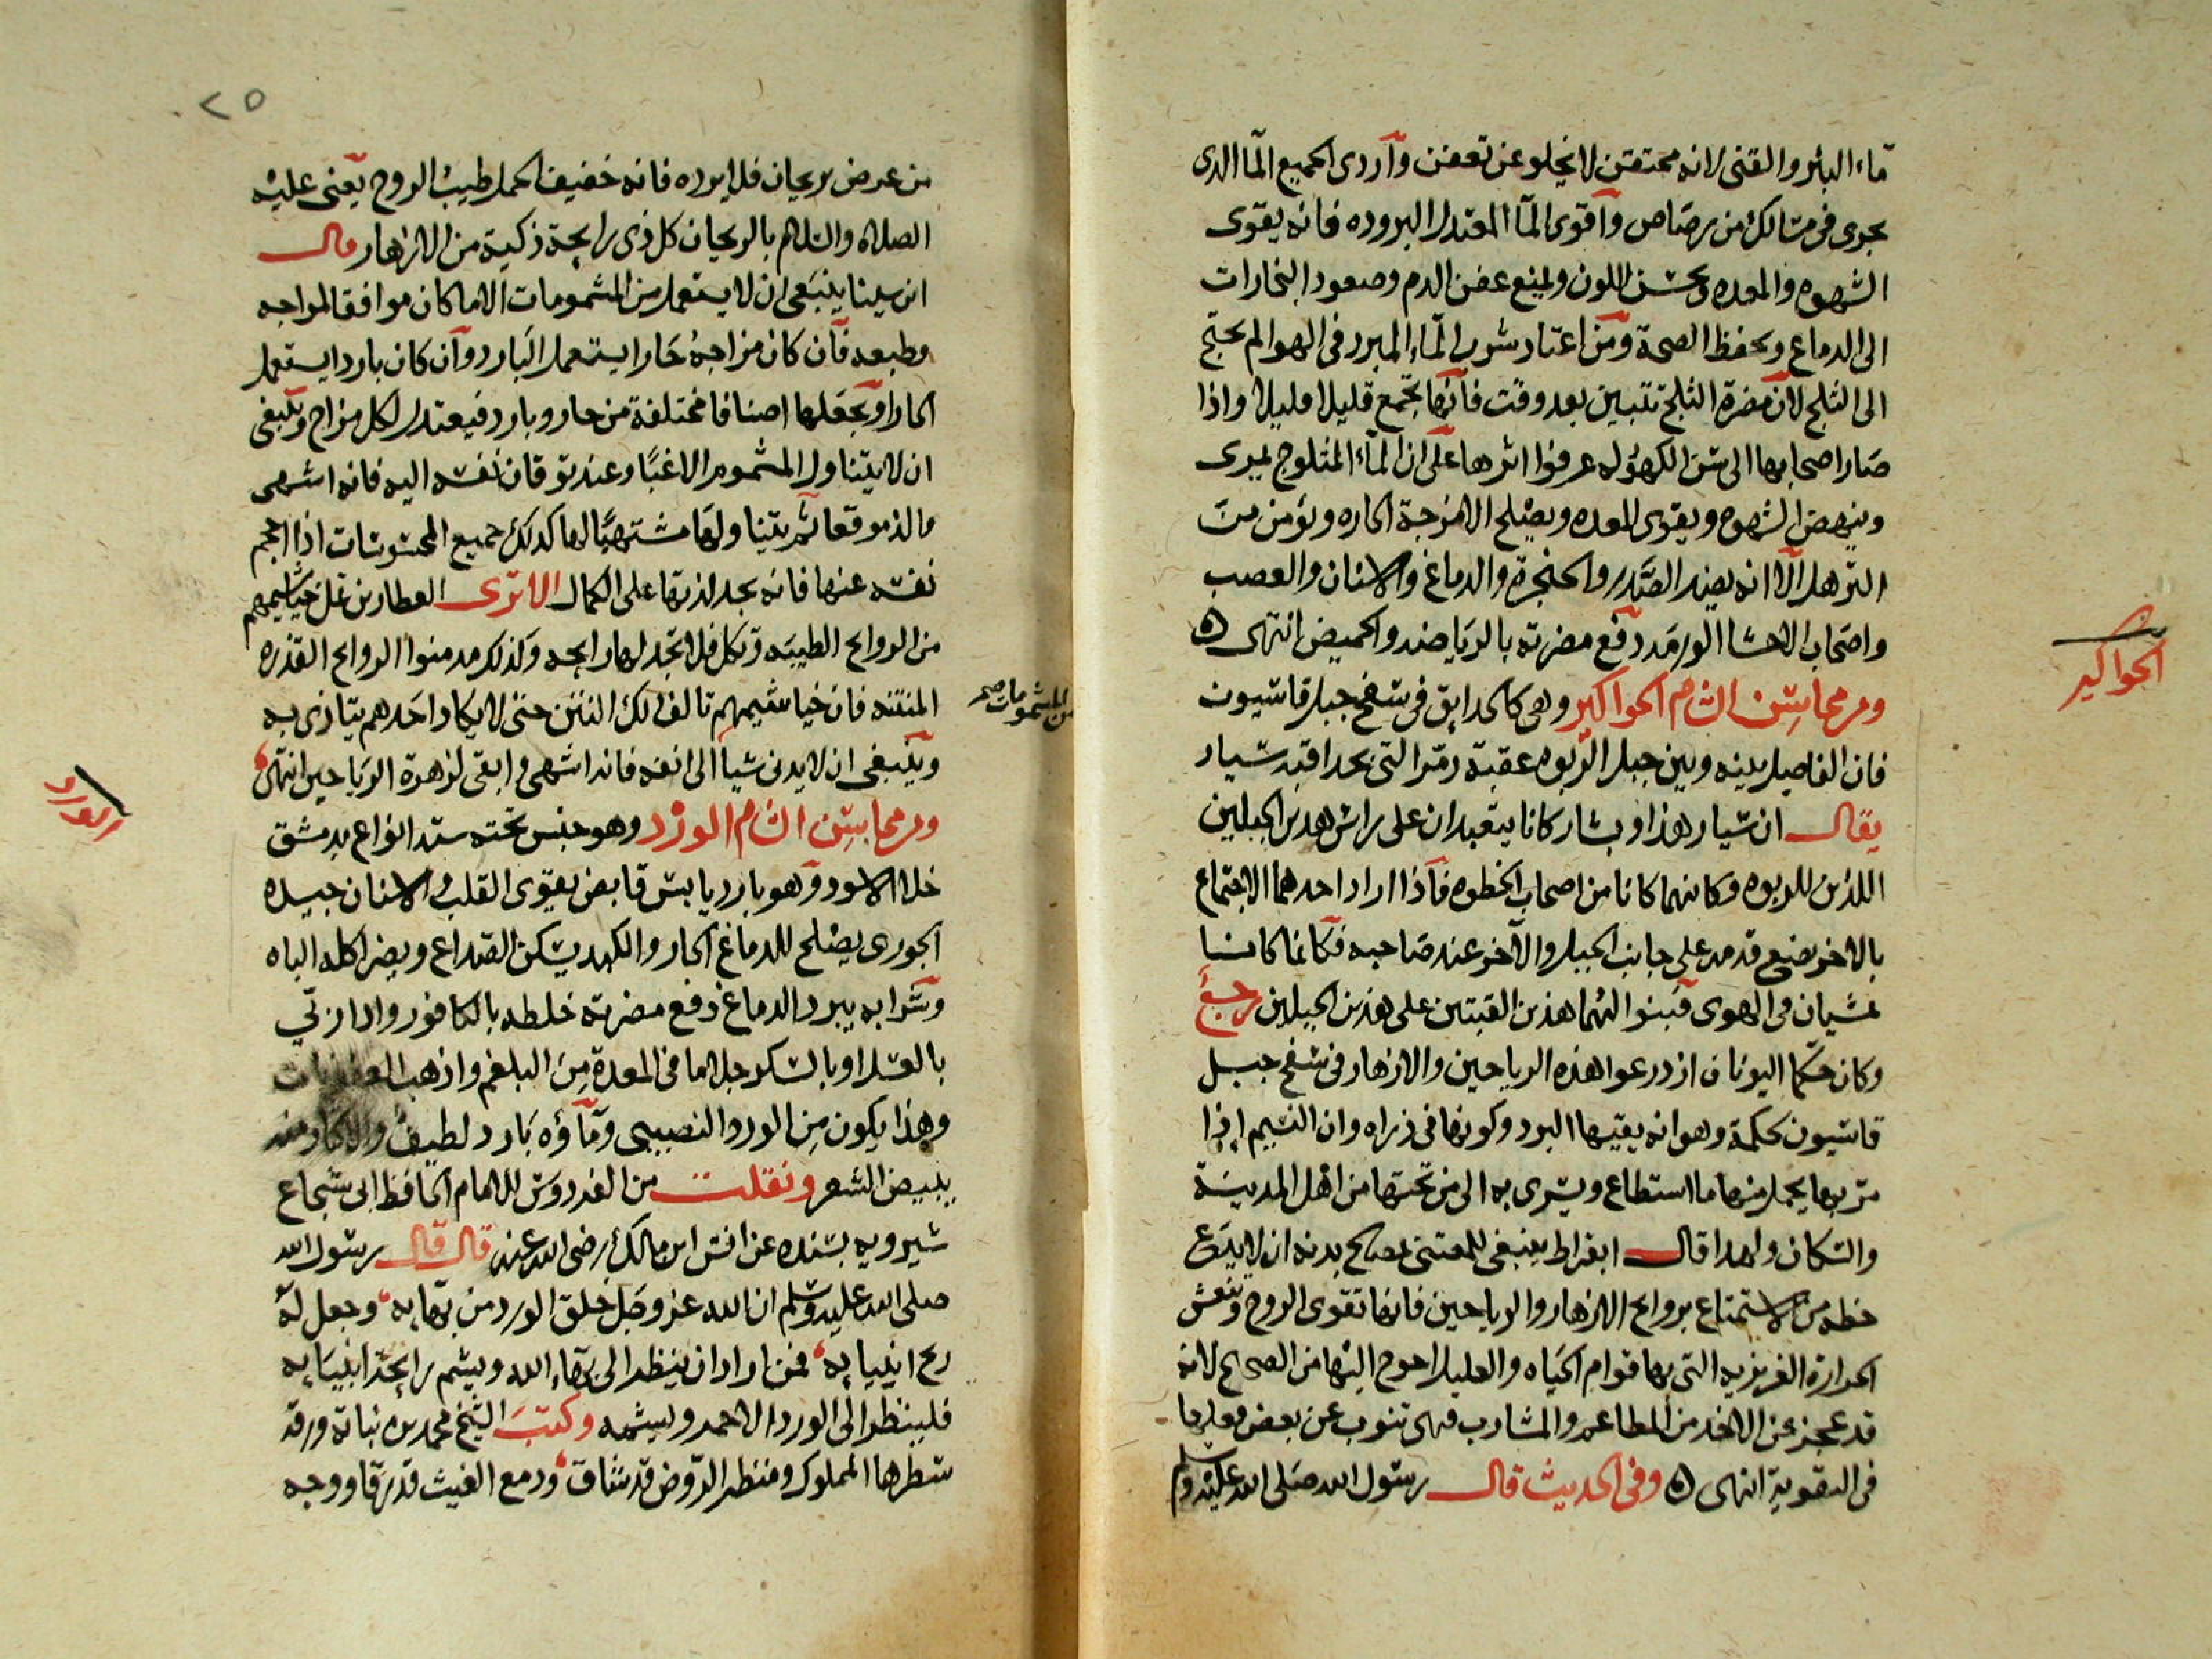 ماء البئر والقنى لانه محتقن لا يخلو عن تعفن واردى الجميع الما الدى
يجرى فى مسالك من رصاص واقوى الما المعتدل البروده فانه يقوى
الشهوه والمعده ويحسن اللون ويمنع عفن الدم وصعود البخارات
الى الدماغ ويحفظ الصحة ومن اعتاد شرب الماء المبرد فى الهوا لم يحتج
الى الثلج لان مضرة الثلج تتبين بعد وقت فانها تجمع قليلا قليلا واذا
صار اصحابها الى سن الكهوله عرفوا اثرها على ان الماء المثلوج يمرى
وينهض الشهوه ويقوى المعده ويصلح الامزجة الحاره ويؤمن من
الترهل الا انه يضر الصدر والحنجرة والدماغ والاسنان والعصب
واصحاب الاحشا الورمه دفع مضرته بالرياضه والحميض انتهى ه
ومن محاسن الشام الحواكير وهى كالحدايق فى سفح جبل قاسيون
فان الفاصل بينه وبين جبل الربوه عقبة دمر التى بحدا قبة سيار
يقال ان سيار هذا وبشار كانا يتعبدان على راس هدين الجبلين
اللذين للربوه وكانهما كانا من اصحاب الخطوه فاذا اراد احدهما الاجتماع
بالاخر يضع قدمه على جانب الجبل والآخر عند صاحبه فكانما كانا
يمشيان فى الهوى فبنوا لهما هذين القبتين على هذين الجبلين رجع
وكان حكما اليونان ازدرعوا هذه الرياحين والازهار فى سفح جبل
قاسيون لحكمة وهو انه يقيها البرد وكونها فى ذراه وان النسيم اذا
مر بها يحمل منها ما استطاع ويسرى به الى من تحتها من اهل المدينة
والسكان واهدا قال ابقراط ينبغى للمعتنى بمصالح بدنه ان لا يدع
حظه من الاستمتاع بروايح الازهار والرياحين فانها تقوى الروح وتنعش
الحرارة الغريزيه التى بها قوام الحياه والعليل احوج اليها من الصحيح لانه
قد عجز عن الاخذ من المطاعم والمشارب فهى تنوب عن بعض فعلها
فى التقوية انتهى ه وفى الحديث قال رسول الله صلى الله عليه وسلم
الحواكير
٢٥
من عرض ريحان فلا يرده فانه خفيف الحمل طيب الروح يعنى عليه
الصلاه والسلام بالريحان كل ذى رايحة ذكية من الازهار قال
ابن سينا ينبغى ان لا يستعمل من المشمومات الا ما كان موافقا لمزاجه
وطبعه فان كان مزاجه حارا يستعمل البارد وان كان باردا يستعمل
الحار او يجعلها اصنافا مختلفة من حار وبارد فيعتدل لكل مزاج وينبغى
ان لا يتناول المشموم الا غبا وعند توقان نفسه اليه فانه اشهى
والذ موقعا ثم يتناولها مشتهيا لها كدلك جميع المحسوسات اذا احجم
نفسه عنها فانه يجد لذتها على الكمال الا ترى العطارين تمل خياشيمهم
من الروايح الطيبه وتكل فلا تجد لها رايحه وكذلك مدمنوا الروايح القذره
المنتنه فان خياشيمهم تالف لك النتن حتى لا يكاد احدهم يتاذى به
من المشمومات صح
وينبغى ان لا يدنى شيا الى انفه فانه اشهى وابقى لزهرة الرياحين انتهى
ومن محاسن الشام الورد وهو جنس تحته ستة انواع بدمشق
خلا الاسود وهو بارد يابس قابض يقوى القلب والاسنان جيده
الجورى يصلح للدماغ الحار والكبد يسكن الصداع ويضر اكله الباه
وشرابه يبرد الدماغ دفع مضرته خلطه بالكافور وادا ربى
بالعسل او بالسكر جلا ما فى المعدة من البلغم واذهب العفونات
وهذا يكون من الورد النصيبى وماؤه بارد لطيف والاكثار منه
يبيض الشعر ونقلت من الفردوس للامام الحافظ ابى شجاع
شيرويه بسنده عن انس ابن مالك رضى الله عنه قال قال رسول الله
صلى الله عليه وسلم ان الله عز وجل خلق الورد من بهايه وجعل له
ريح انبيايه فمن اراد ان ينظر الى بهاء الله ويشم رايحة انبيايه
فلينظر الى الورد الاحمر ويشمه وكتب الشيخ محمد بن نباتة ورقة
سطرها المملوك ومنظر الروض قد شاق ودمع الغيث قد رقا ووجه
الورد